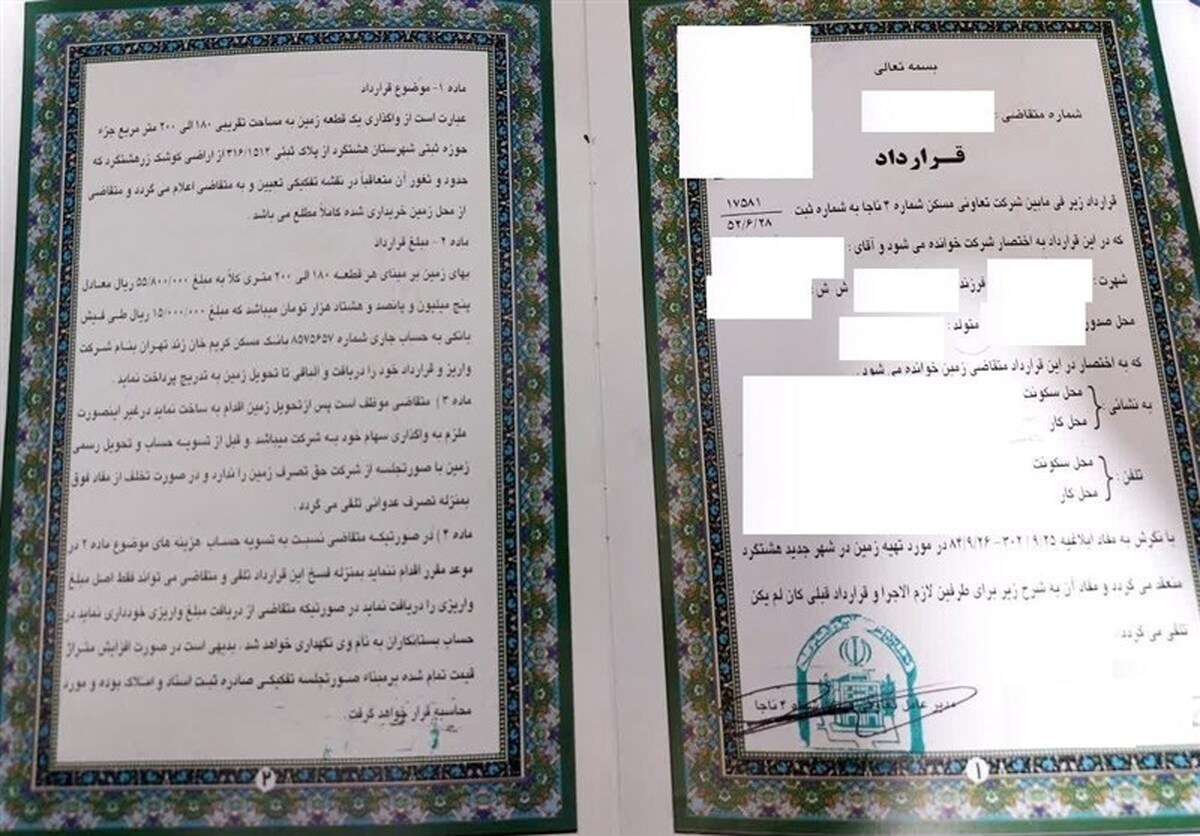 بسمه تعالی
شماره متقاضی :
قرارداد
قرارداد زیر فی مابین شرکت تعاونی مسکن شماره ۳ ناجا به شماره ثبت ۱۷۵۸۱
۵۲/۶/۲۸
که در این قرارداد به اختصار شرکت خوانده می شود و آقای :
شهرت : فرزند ش ش :
محل صدور متولد :
که به اختصار در این قرارداد متقاضی زمین خوانده می شود .
به نشانی محل سکونت
محل کار
تلفن : محل سکونت
محل کار
با نگرش به مفاد ابلاغیه ۳۰۲/۹/۲۵ – ۸۴/۹/۲۶ در مورد تهیه زمین در شهر جدید هشتگرد
منعقد می گردد و مفاد آن به شرح زیر برای طرفین لازم الاجرا و قرارداد قبلی کان لم یکن
تلقی می گردد
مدیر عامل تعاونی ۳ ناجا
۱
ماده ۱- موضوع قرارداد
عبارت است از واگذاری یک قطعه زمین به مساحت تقریبی ۱۸۰ الی ۲۰۰ متر مربع جزء
حوزه ثبتی شهرستان هشتگرد از پلاک ثبتی ۳۱۶/۱۵۱۴ از اراضی کوشک زرهشتگرد که
حدود و ثغور آن متعاقباً در نقشه تفکیکی تعیین و به متقاضی اعلام می گردد و متقاضی
از محل زمین خریداری شده کاملاً مطلع می باشد .
ماده ۲ - مبلغ قرارداد
بهای زمین بر مبنای هر قطعه ۱۸۰ الی ۲۰۰ متری کلاً به مبلغ ۵۵/۸۰۰/۰۰۰ ریال معادل
پنج میلیون و پانصد و هشتاد هزار تومان میباشد که مبلغ ۱۵/۰۰۰/۰۰۰ ریال طی فیش
بانکی به حساب جاری شماره ۸۵۷۵۶۵۷ بانک مسکن کریم خان زند تهران بنام شرکت
واریز و قرارداد خود را دریافت و الباقی تا تحویل زمین به تدریج پرداخت نماید .
ماده ۳ ) متقاضی موظف است پس از تحویل زمین اقدام به ساخت نماید درغیر اینصورت
ملزم به واگذاری سهام خود به شرکت میباشد و قبل از تسویه حساب و تحویل رسمی
زمین با صورتجلسه از شرکت حق تصرف زمین را ندارد و در صورت تخلف از مفاد فوق
بمنزله تصرف عدوانی تلقی می گردد .
ماده ۴ ) در صورتیکه متقاضی نسبت به تسویه حساب هزینه های موضوع ماده ۲ در
موعد مقرر اقدام ننماید بمنزله فسخ این قرارداد تلقی و متقاضی می تواند فقط اصل مبلغ
واریزی را دریافت نماید در صورتیکه متقاضی از دریافت مبلغ واریزی خودداری نماید در
حساب بستانکاران به نام وی نگهداری خواهد شد . بدیهی است در صورت افزایش متراژ
قیمت تمام شده برمبناء صورتجلسه تفکیکی صادره ثبت اسناد و املاک بوده و مورد
محاسبه قرار خواهد گرفت .
۲